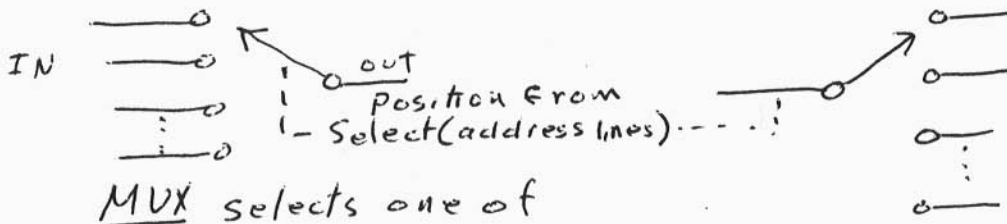 IN
out
Position from
Select (address lines)
MUX selects one of